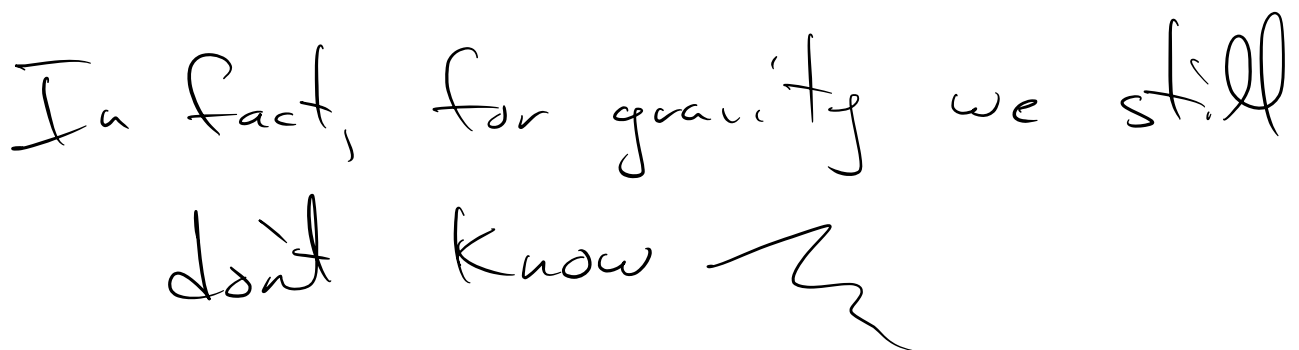 In fact, for gravity we still
don't know